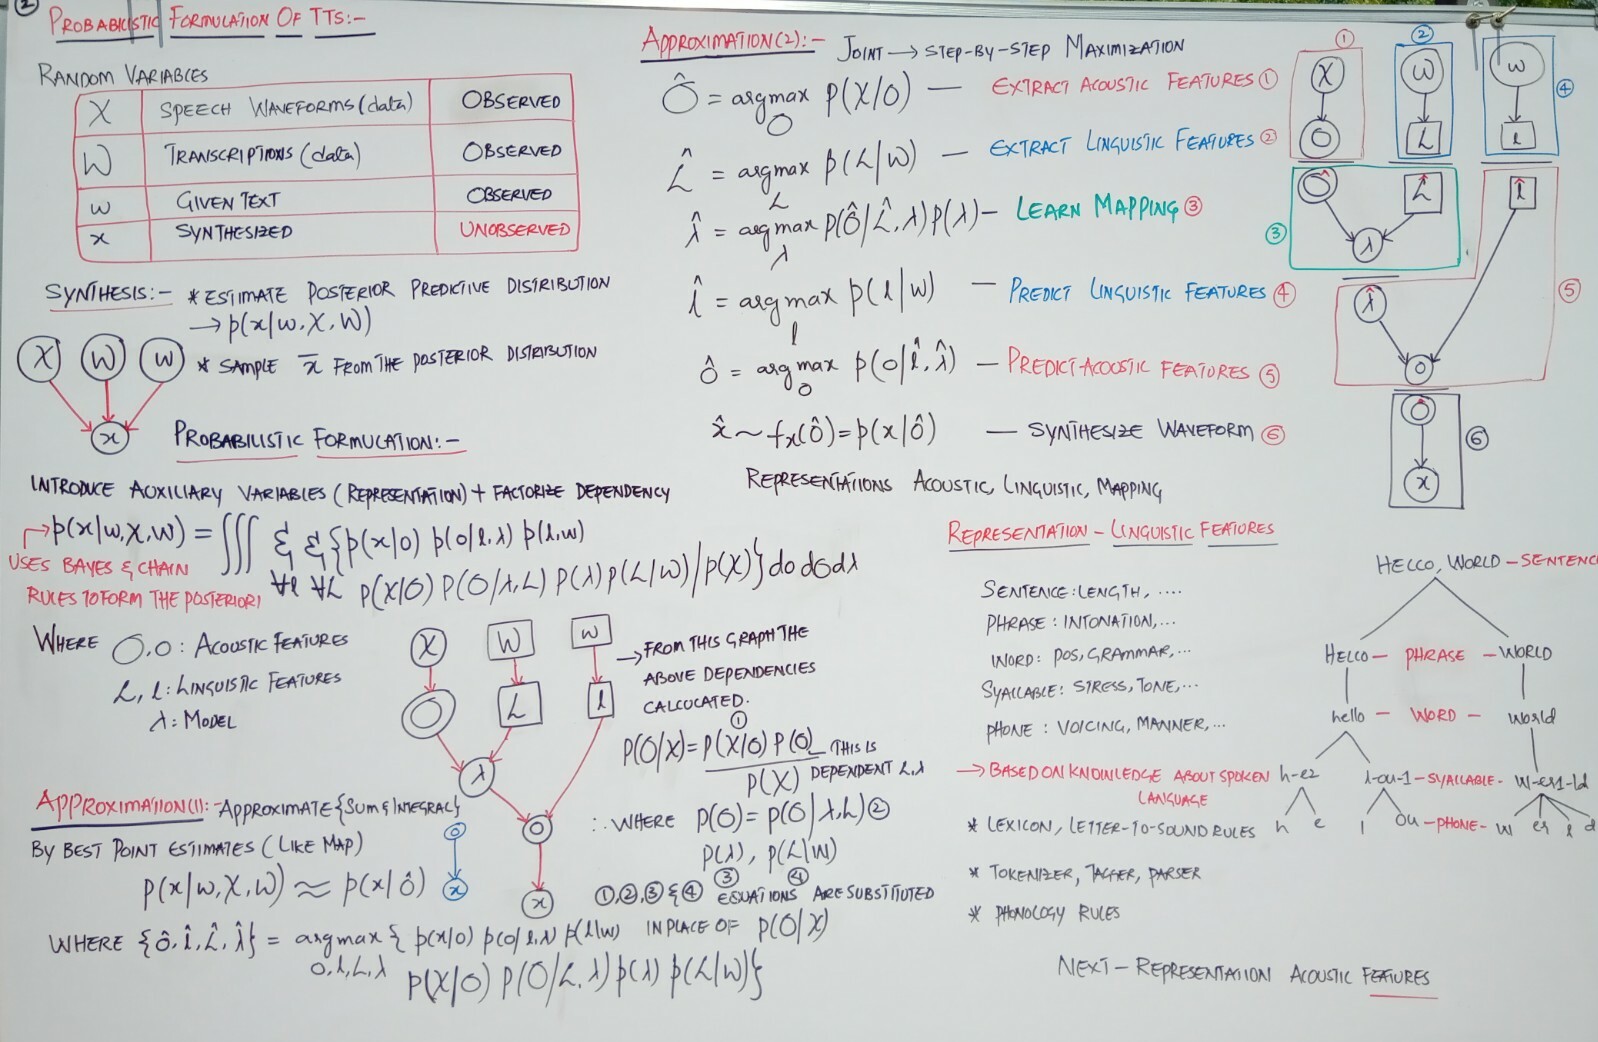 ②
PROBABILISTIC FORMULATION OF TTS:-
RANDOM VARIABLES
X SPEECH WAVEFORMS (data) OBSERVED
W TRANSCRIPTIONS (data) OBSERVED
w GIVEN TEXT OBSERVED
x SYNTHESIZED UNOBSERVED
SYNTHESIS:- * ESTIMATE POSTERIOR PREDICTIVE DISTRIBUTION
→ p(x|w,X,W)
X W w * SAMPLE x̄ FROM THE POSTERIOR DISTRIBUTION
x
PROBABILISTIC FORMULATION:-
INTRODUCE AUXILIARY VARIABLES (REPRESENTATION) + FACTORIZE DEPENDENCY
→ p(x|w,X,W) = ∭ Σ Σ {p(x|o) p(o|l,λ) p(l,w)
∀l ∀L P(X|O) P(O/λ,L) P(λ) p(L/W) / p(X)} do dO dλ
USES BAYES & CHAIN
RULES TO FORM THE POSTERIORI
WHERE O,o : ACOUSTIC FEATURES
L, l : LINGUISTIC FEATURES
λ : MODEL
X W w
O L l
λ
o
x
→ FROM THIS GRAPH THE
ABOVE DEPENDENCIES
CALCULATED.
①
P(O/X) = P(X/O) P(O) / P(X) THIS IS
DEPENDENT L,λ
∴ WHERE P(O) = P(O|λ,L) ②
P(λ), P(L|W)
③ ④
①,②,③ & ④ EQUATIONS ARE SUBSTITUTED
IN PLACE OF P(O/X)
APPROXIMATION(1):- APPROXIMATE {SUM & INTEGRAL}
BY BEST POINT ESTIMATES (LIKE MAP)
p(x|w,X,W) ≈ p(x|ô)
o
x
WHERE {ô,l̂,L̂,λ̂} = argmax { p(x|o) p(o|l,λ) p(l|w)
o,l,L,λ
P(X/O) P(O/L,λ) p(λ) p(L/W)}
APPROXIMATION(2):- JOINT → STEP-BY-STEP MAXIMIZATION
Ô = argmax P(X/O) — EXTRACT ACOUSTIC FEATURES ①
O
L̂ = argmax p(L|W) — EXTRACT LINGUISTIC FEATURES ②
L
λ̂ = argmax P(Ô/L̂,λ) p(λ) — LEARN MAPPING ③
λ
l̂ = argmax p(l|w) — PREDICT LINGUISTIC FEATURES ④
l
ô = argmax p(o|l̂,λ̂) — PREDICT ACOUSTIC FEATURES ⑤
o
x̂ ~ fx(ô) = p(x|ô) — SYNTHESIZE WAVEFORM ⑥
REPRESENTATIONS ACOUSTIC, LINGUISTIC, MAPPING
① ②
X W w ④
O L l
Ô L̂ l̂
③ λ
λ̂ ⑤
o
ô ⑥
x
REPRESENTATION - LINGUISTIC FEATURES
SENTENCE : LENGTH, ....
PHRASE : INTONATION, ...
WORD : POS, GRAMMAR, ...
SYAILABLE : STRESS, TONE, ...
PHONE : VOICING, MANNER, ...
→ BASED ON KNOWLEDGE ABOUT SPOKEN
LANGUAGE
* LEXICON, LETTER-TO-SOUND RULES
* TOKENIZER, TAGGER, PARSER
* PHONOLOGY RULES
HELLO, WORLD - SENTENCE
HELLO - PHRASE - WORLD
hello - WORD - World
h-e2 l-ou-1 - SYAILABLE - w-er1-l-d
h e l ou - PHONE - w er l d
NEXT - REPRESENTATION ACOUSTIC FEATURES